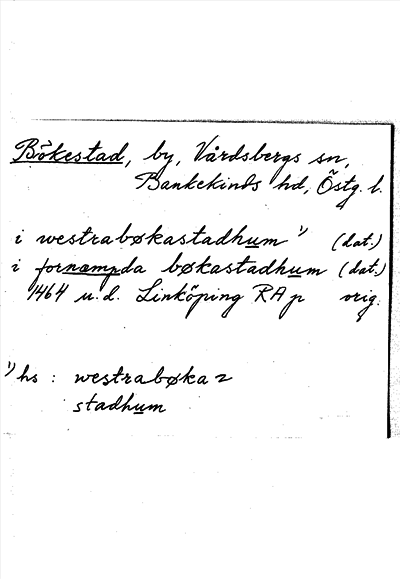 Bökestad, by, Vårdsbergs sn,
Bankekinds hd, Östg. l.
i westrabøkastadhum ¹⁾ (dat.)
i fornæmpda bøkastadhum (dat.)
1464 u.d. Linköping RAp orig.
¹⁾ hs : westrabøka 2
stadhum